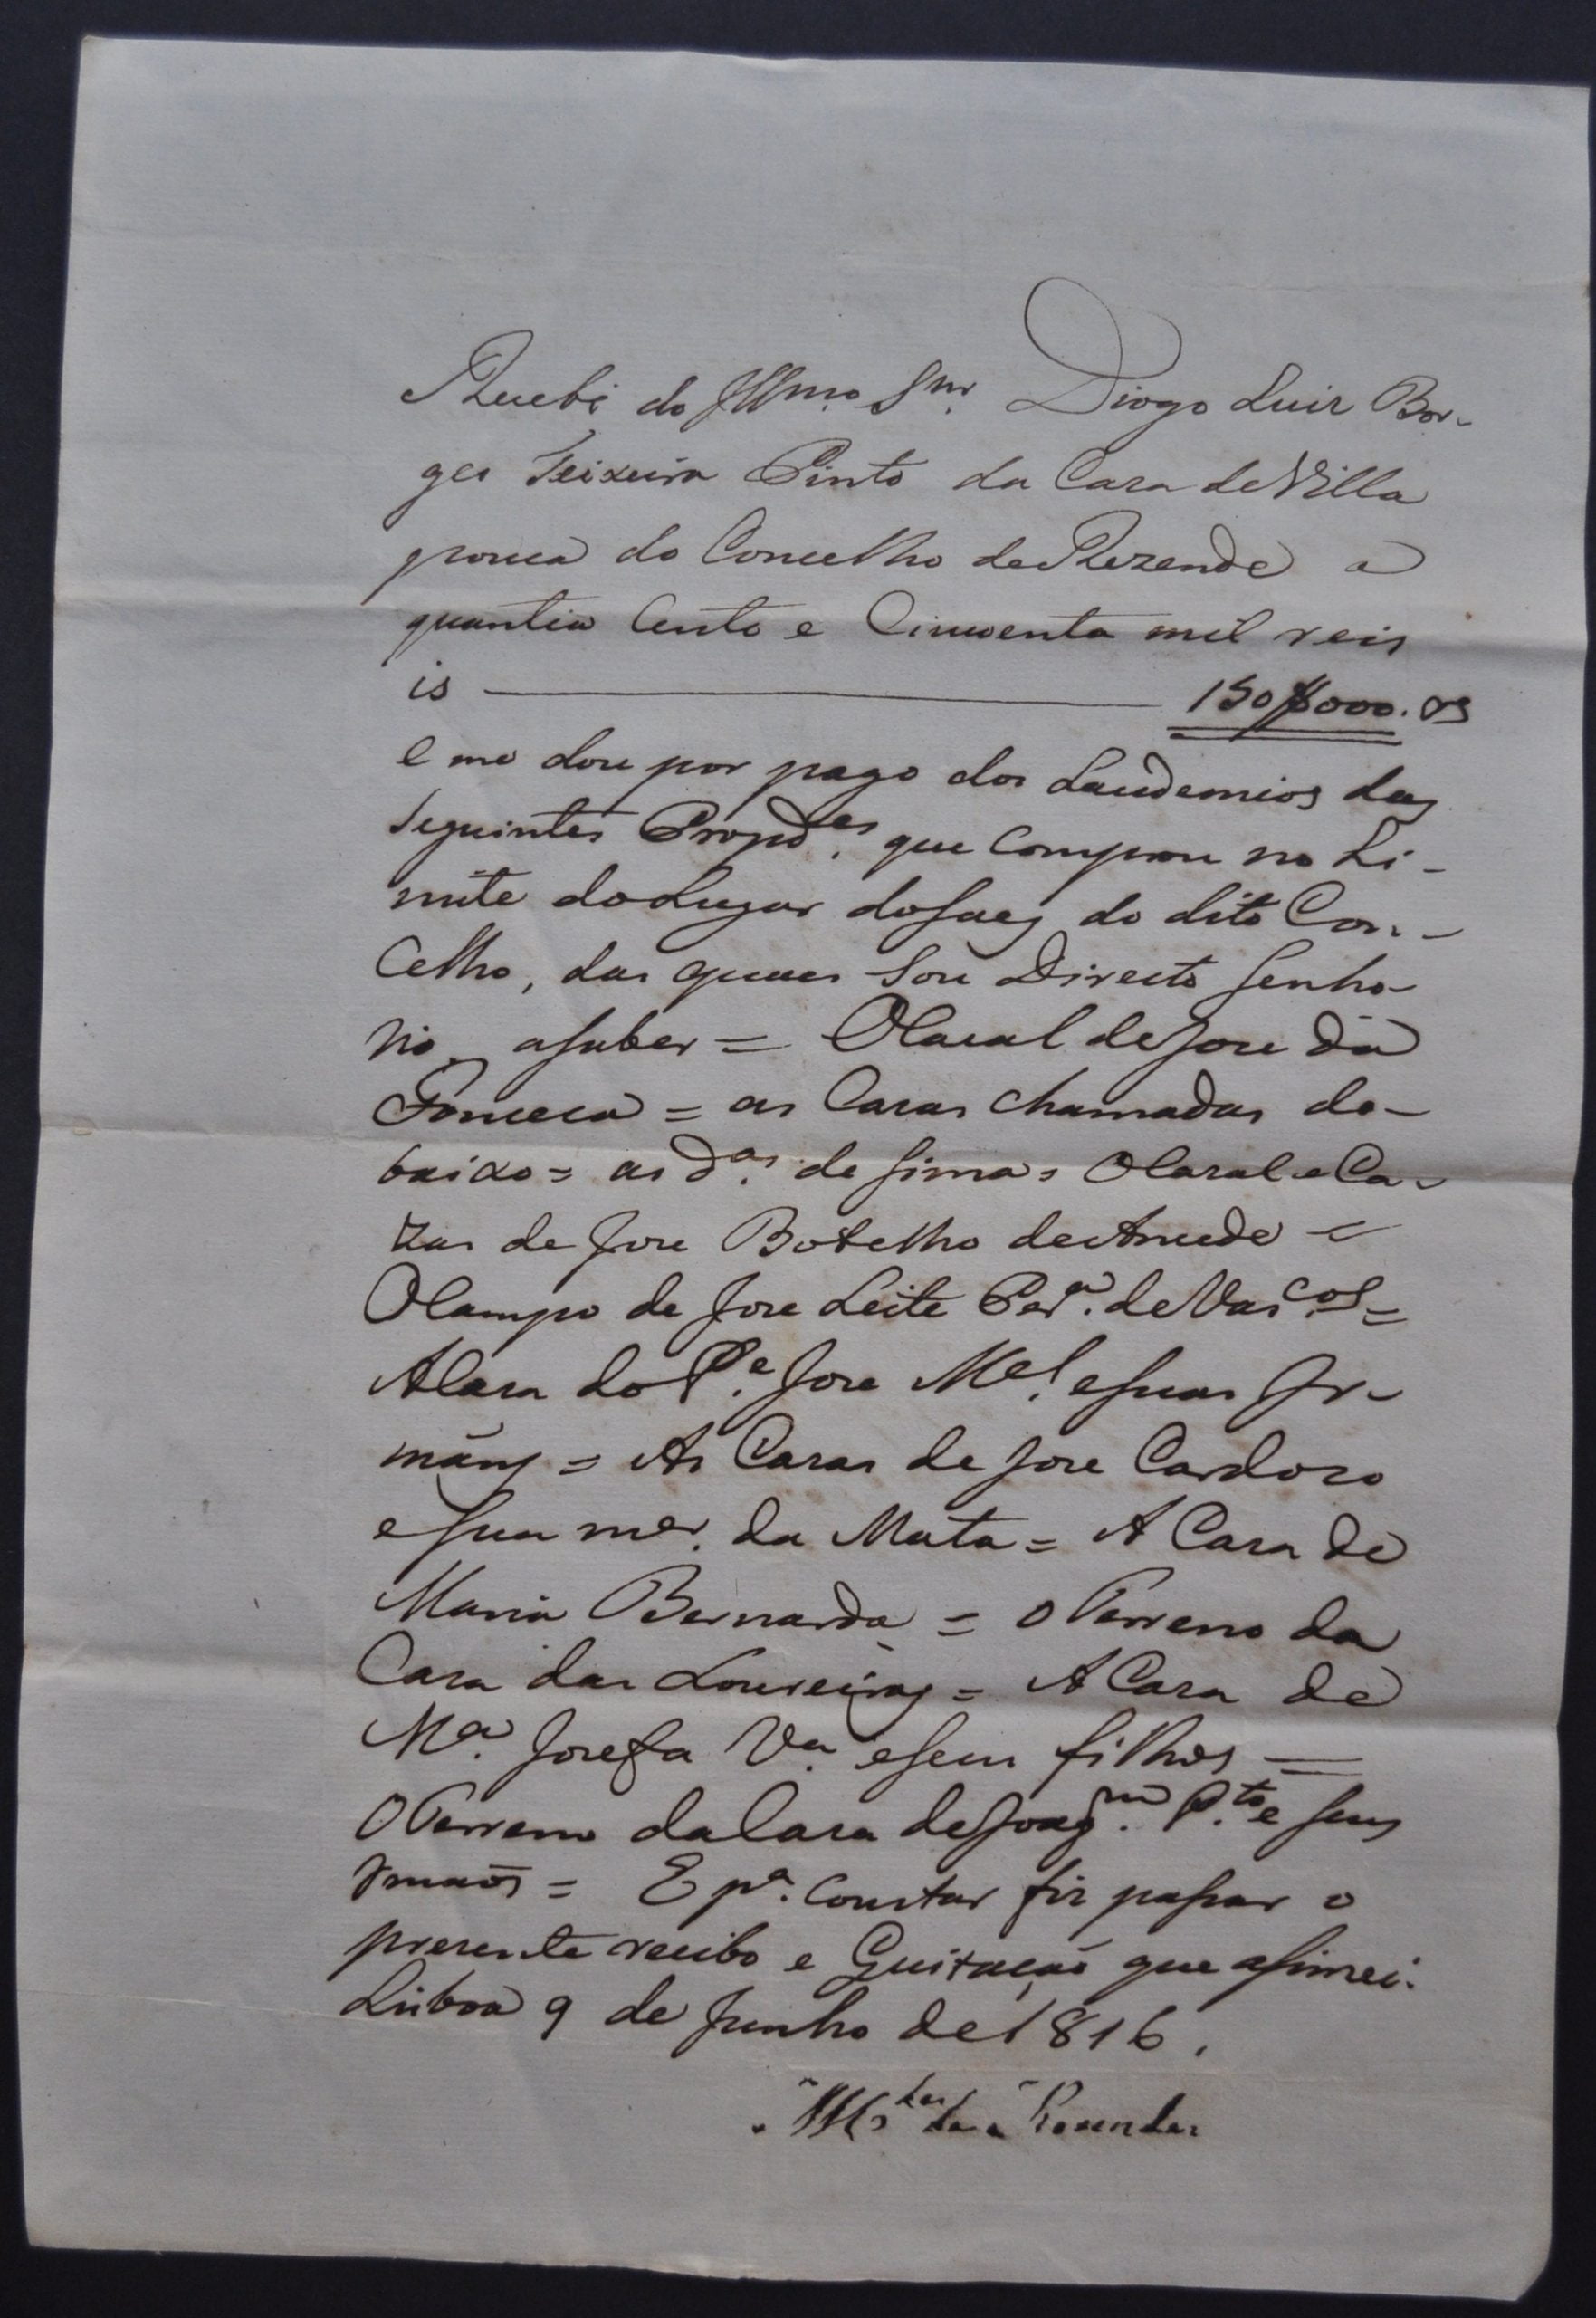 Recebi do Illmo. Snr. Diogo Luis Bor-
ges Teixeira Pinto da Casa de Villa
pouca do Concelho de Rezende a
quantia Cento e Cincoenta mil reis
is 150$000. rs
e me dou por pago dos Laudemios das
seguintes Propd.es que Comprou no Li-
mite do Lugar do do dito Con-
celho, das quaes sou Directo Senho-
rio asaber = O Casal de Joze da
Fonceca = as Casas chamadas de-
baixo = as d.as de sima = O Casal e Ca-
zas de Joze Botelho de =
O Campo de Joze Leite Per.a de Vas.cos =
A Casa do P.e Joze M.el e suas Ir-
mãns = As Casas de Joze Cardozo
e sua m.er da Mata = A Casa de
Maria Bernarda = o Terreno da
Casa das Loureiras = A Casa de
M.a Josefa V.a e seus filhos =
O Terreno da Casa de Joaq.m P.to e seus
Irmaõs = E p.a Constar fiz passar o
presente recibo e Quitação que asinei.
Lisboa 9 de Junho de 1816.